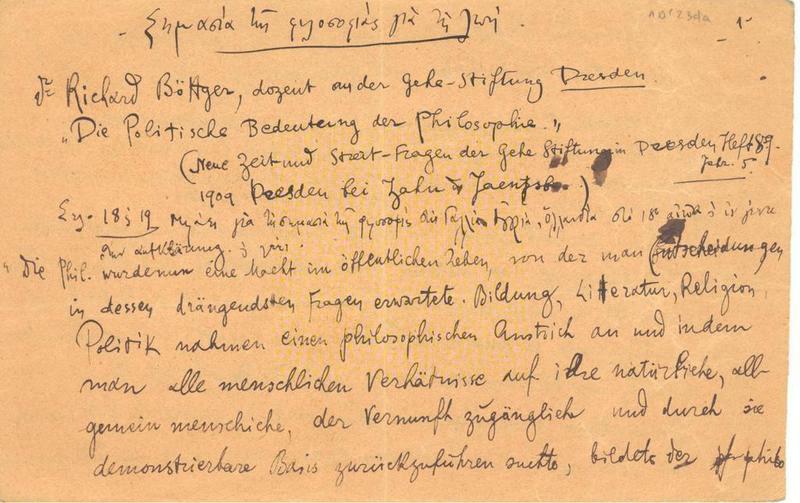 Σημασία τῆς φιλοσοφίας γιὰ τὴ ζωή. -1-
Dr Richard Böttger, dozent an der Gehe-Stiftung Dresden.
„Die Politische Bedeuterng der Philosophie.„
(Neue Zeit und Streit-Fragen der Gehe Stiftung in Dresden Heft 8/9.
Jahr. 5.
1909 Dresden bei Zahn & Jaensch.)
Σελ. 18 ἢ 19 γιὰ τὴ σημασία τῆς φιλοσοφίας
Aufklärung.
"die Phil. wurde nun eine Macht im öffentlichen Leben, von der man Entscheidungen
in dessen drängendsten Fragen erwartete. Bildung, Literatur, Religion,
Politik nahmen einen philosophischen Anstrich an und indem
man alle menschlichen Verhätnisse auf ihre natürliche, all-
gemein menschiche, der Vernunft zugängliche und durch sie
demonstrierbare Basis zurückzuführen suchte, bildete der